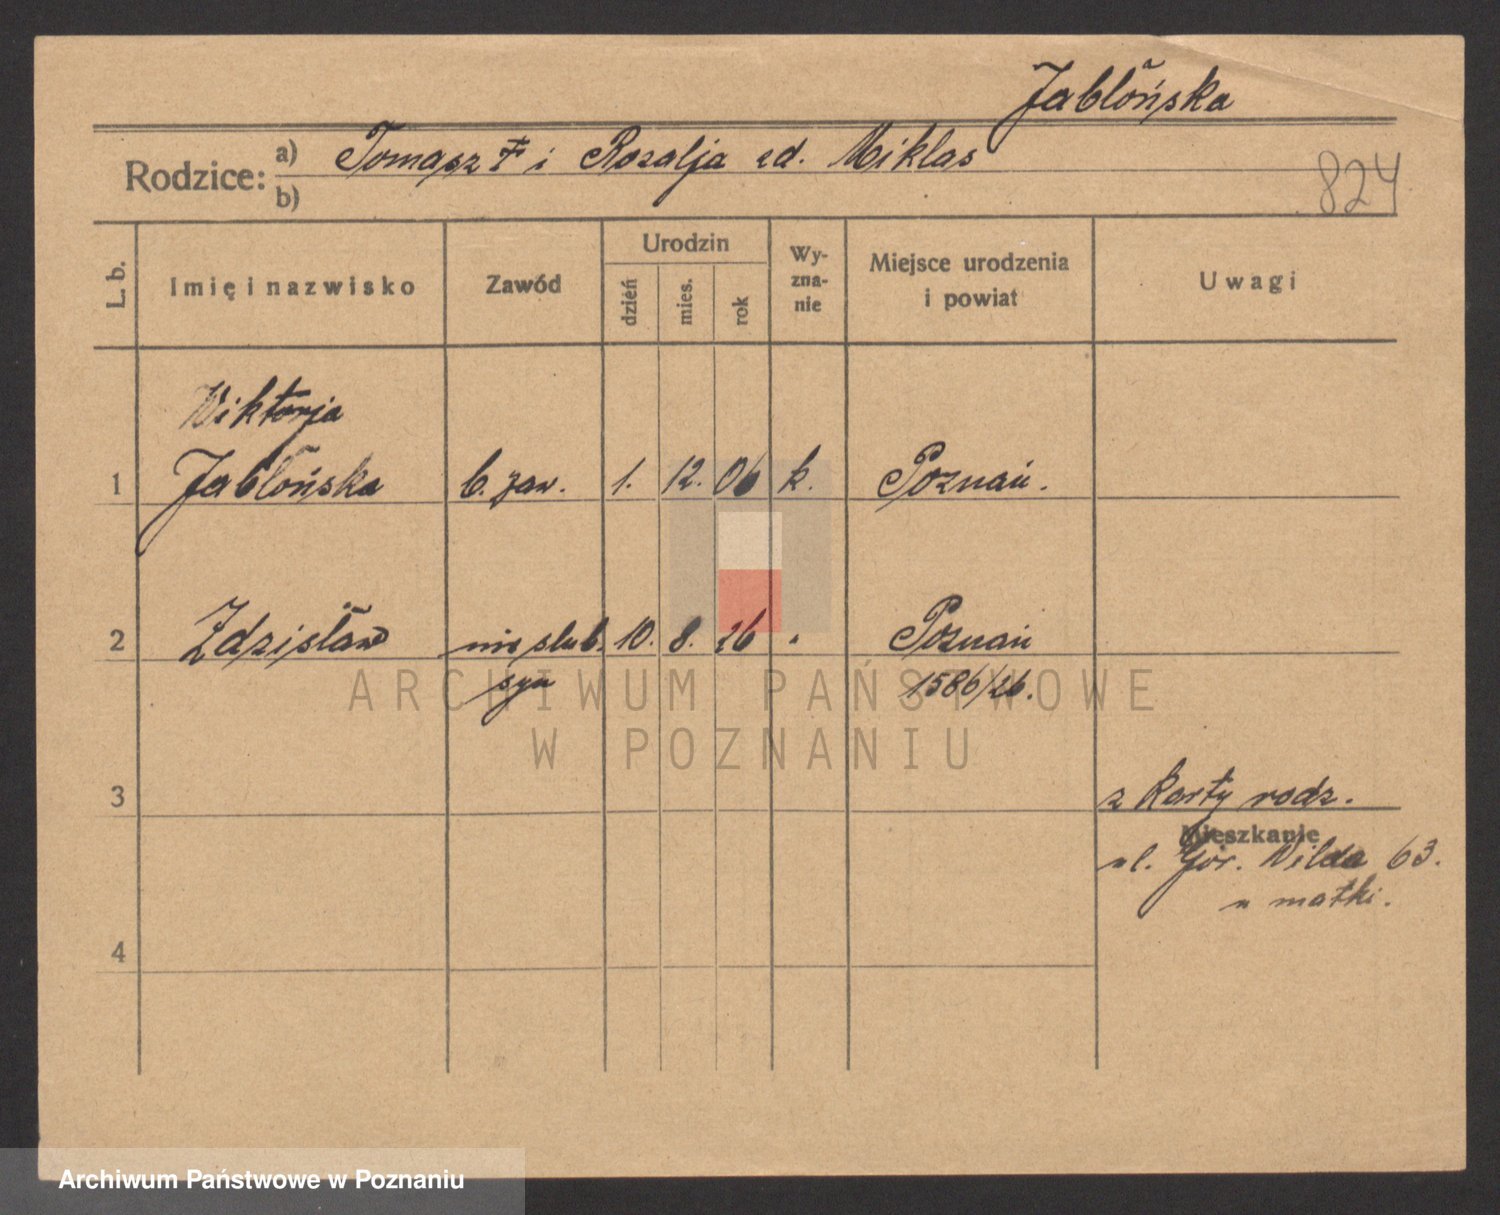 Jabłońska
Rodzice: a) Tomasz ✝ i Rozalja zd. Miklas
b)
824
L. b.
Imię i nazwisko
Zawód
Urodzin
dzień
mies.
rok
Wy-
zna-
nie
Miejsce urodzenia
i powiat
Uwagi
Wiktorja
1 Jabłońska b. zaw. 1. 12. 06 k. Poznań.
2 Zdzisław nieślub. 10. 8. 26 " Poznań
syn 1586/26.
ARCHIWUM PAŃSTWOWE
W POZNANIU
3 z karty rodz.
Mieszkanie
ul. Gór. Wilda 63.
u matki.
4
Archiwum Państwowe w Poznaniu